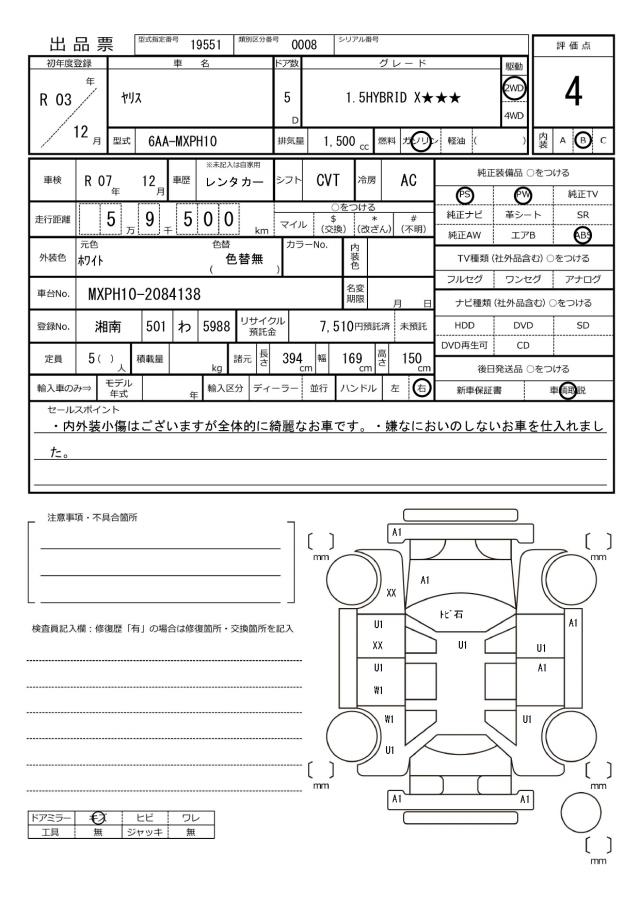 出品票 型式指定番号 19551 類別区分番号 0008 シリアル番号
評価点
4
初年度登録 車名 ドア数 グレード 駆動
R 03 年 12 月 ヤリス 5 D 1.5HYBRID X★★★ 2WD 4WD
型式 6AA-MXPH10 排気量 1,500 cc 燃料 ガソリン 軽油 ( ) 内装 A B C
車検 R 07 年 12 月 車歴 ※未記入は自家用 レンタカー シフト CVT 冷房 AC
走行距離 5 万 9 千 5 0 0 km ○をつける
マイル $ (交換) * (改ざん) # (不明)
外装色 元色 ホワイト 色替 ( 色替無 ) カラーNo. 内装色
車台No. MXPH10-2084138 名変期限 月 日
登録No. 湘南 501 わ 5988 リサイクル預託金 7,510円預託済 未預託
定員 5 ( ) 人 積載量 kg 諸元 長さ 394 cm 幅 169 cm 高さ 150 cm
輸入車のみ⇒ モデル年式 年 輸入区分 ディーラー 並行 ハンドル 左 右
純正装備品 ○をつける
PS PW 純正TV
純正ナビ 革シート SR
純正AW エアB ABS
TV種類 (社外品含む) ○をつける
フルセグ ワンセグ アナログ
ナビ種類 (社外品含む) ○をつける
HDD DVD SD
DVD再生可 CD
後日発送品 ○をつける
新車保証書 車輌取説
セールスポイント
・内外装小傷はございますが全体的に綺麗なお車です。・嫌なにおいのしないお車を仕入れまし
た。
注意事項・不具合箇所
検査員記入欄：修復歴「有」の場合は修復箇所・交換箇所を記入
A1
mm mm
A1
XX
トビ石
U1 A1
XX U1 U1
U1 A1
W1
W1 U1
U1
mm mm
A1 A1
mm
ドアミラー キズ ヒビ ワレ
工具 無 ジャッキ 無